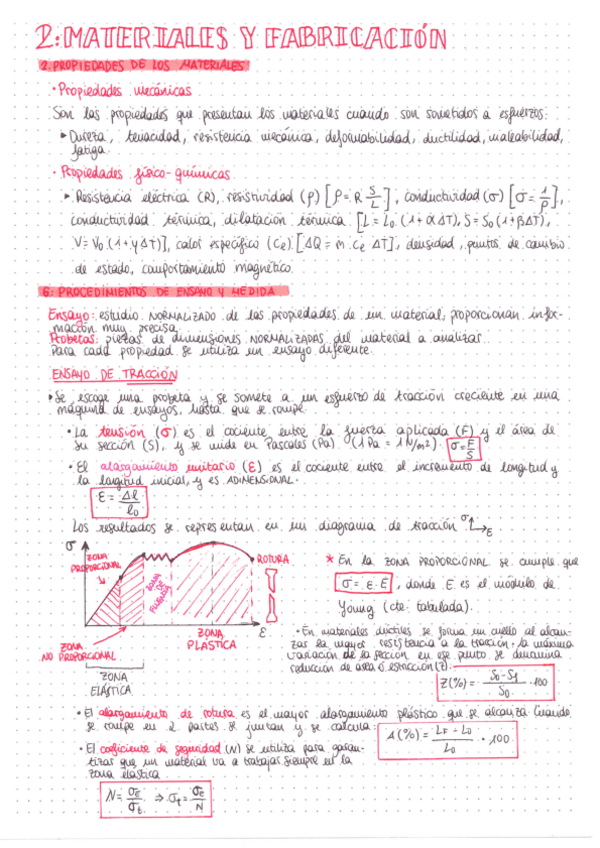 2: MATERIALES Y FABRICACIÓN
2. PROPIEDADES DE LOS MATERIALES
· Propiedades mecánicas
Son las propiedades que presentan los materiales cuando son sometidos a esfuerzos:
▸ Dureza, tenacidad, resistencia mecánica, deformabilidad, ductilidad, maleabilidad,
fatiga.
· Propiedades físico-químicas
▸ Resistencia eléctrica (R), resistividad (ρ) [ρ = R S/L], conductividad (σ) [σ = 1/ρ],
conductividad térmica, dilatación térmica [L = L₀ · (1 + αΔT), S = S₀ (1 + βΔT),
V = V₀ (1 + γΔT)], calor específico (Ce) [ΔQ = m · Ce ΔT], densidad, puntos de cambio
de estado, comportamiento magnético.
6: PROCEDIMIENTOS DE ENSAYO Y MEDIDA
Ensayo: estudio NORMALIZADO de las propiedades de un material, proporcionan infor-
mación muy precisa.
Probetas: piezas de dimensiones NORMALIZADAS del material a analizar.
Para cada propiedad se utiliza un ensayo diferente.
ENSAYO DE TRACCIÓN
• Se escoge una probeta y se somete a un esfuerzo de tracción creciente en una
máquina de ensayos, hasta que se rompe.
• La tensión (σ) es el cociente entre la fuerza aplicada (F) y el área de
su sección (S), y se mide en Pascales (Pa) (1 Pa = 1 N/m²). σ = F/S
• El alargamiento unitario (ε) es el cociente entre el incremento de longitud y
la longitud inicial, y es ADIMENSIONAL.
ε = Δl/l₀
Los resultados se representan en un diagrama de tracción σ ε
σ
ZONA
PROPORCIONAL
ZONA
DE
FLUENCIA
ROTURA
ε
ZONA
NO PROPORCIONAL
ZONA
PLÁSTICA
ZONA
ELÁSTICA
* En la ZONA PROPORCIONAL se cumple que
σ = E · ε, donde E es el módulo de
Young (cte. tabulada).
• En materiales dúctiles se forma un cuello al alcan-
zar la mayor resistencia a la tracción. La máxima
variación de la sección en ese punto se denomina
reducción de área o estricción (Z):
Z(%) = S₀ - S₁/S₀ · 100
• El alargamiento de rotura es el mayor alargamiento plástico que se alcanza. Cuando
se rompe en 2 partes se juntan y se calcula: A(%) = LF - L₀/L₀ · 100
• El coeficiente de seguridad (N) se utiliza para garan-
tizar que un material va a trabajar siempre en la
zona elástica.
N = σE/σt ⇒ σt = σE/N